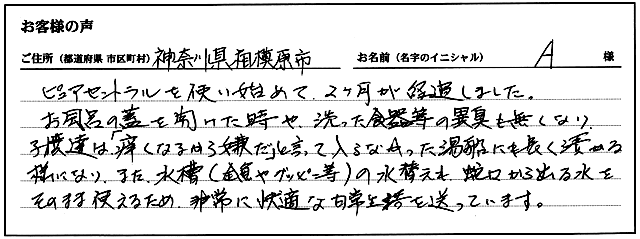 お客様の声
ご住所（都道府県 市区町村） 神奈川県相模原市 お名前（名字のイニシャル） A 様
ピュアセントラルを使い始めて、2ヶ月が経過しました。
お風呂の蓋を開けた時や、洗った食器等の異臭も無くなり、
子供達は「痒くなるから嫌だ」と言って入らなかった湯船にも長く漬かる
様になり、また、水槽（金魚やグッピー等）の水替えも、蛇口から出る水を
そのまま使えるため、非常に快適な日常生活を送っています。